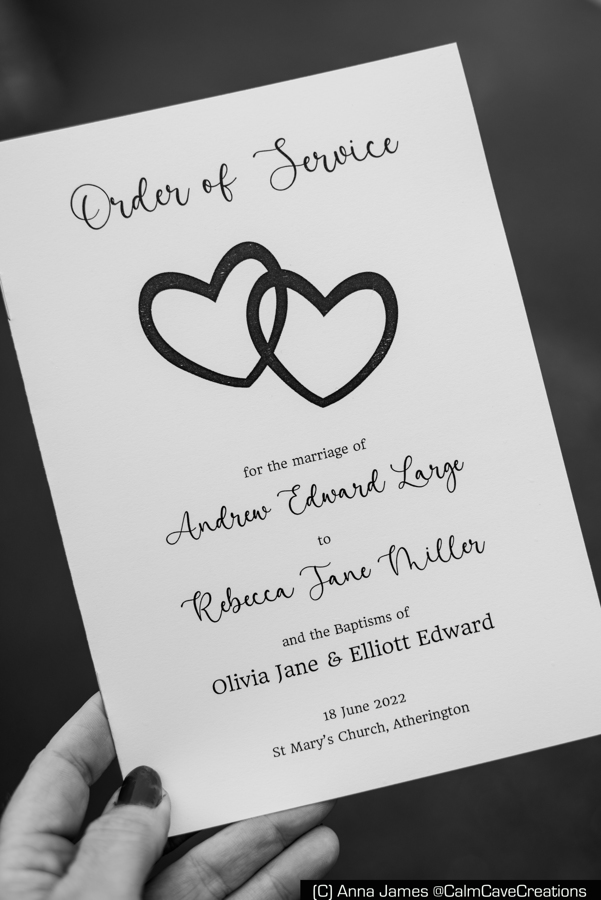 Order of Service
for the marriage of
Andrew Edward Large
to
Rebecca Jane Miller
and the Baptisms of
Olivia Jane & Elliott Edward
18 June 2022
St Mary's Church, Atherington
(C) Anna James @CalmCaveCreations